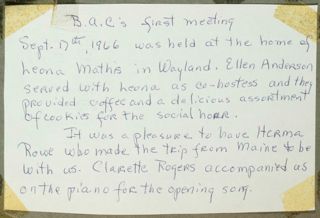 B.A.C's first meeting
Sept. 17th, 1966 was held at the home of
Leona Mathis in Wayland. Ellen Anderson
served with Leona as co-hostess and they
provided coffee and a delicious assortment
of cookies for the social hour.
It was a pleasure to have Herma
Rowe who made the trip from Maine to be
with us. Clarette Rogers accompanied us
on the piano for the opening song.